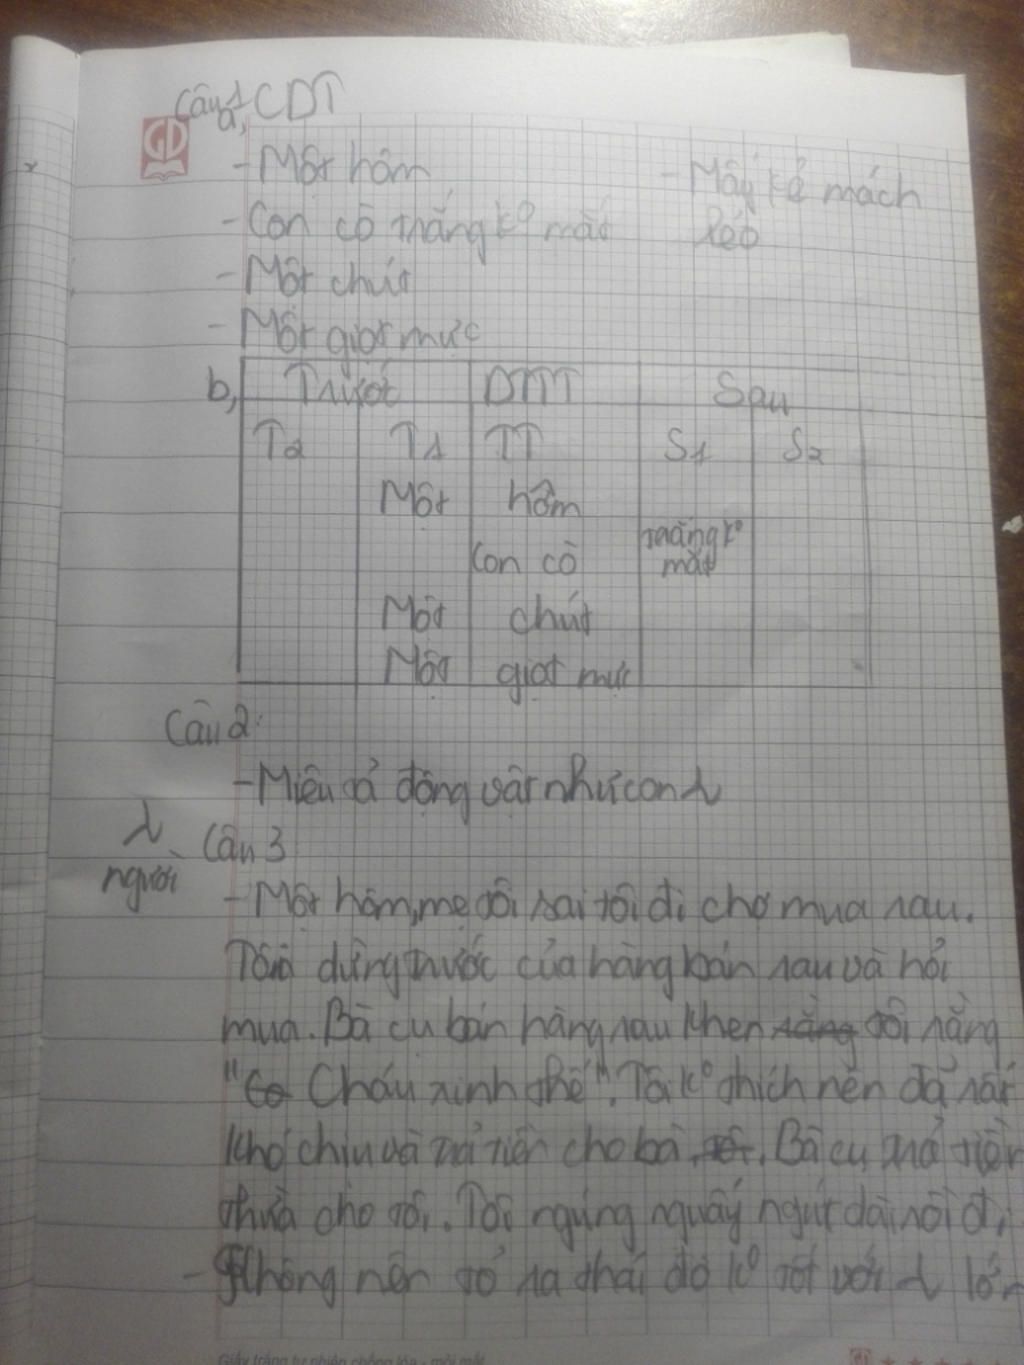 Câu 1, CDT
a,
GD
- Một hôm
- Mấy kẻ mách
- Con cò trắng kº mắt
lẻo
- Một chút
- Một giọt mực
b, Trước DTTT Sau
T2 T1 TT S1 S2
Một hôm
Con cò trắng kº mắt
Một chút
Một giọt mực
Câu 2:
- Miêu tả động vật như con λ
λ người
Câu 3
- Một hôm, mẹ tôi sai tôi đi chợ mua rau.
Tôi dừng trước cửa hàng bán rau và hỏi
mua. Bà cụ bán hàng rau khen rằng tôi rằng
" Cháu xinh thế". Tôi kº thích nên đã rất
khó chịu và trả tiền cho bà. Bà cụ trả tiền
thừa cho tôi. Tôi ngúng nguẩy ngút dài rồi đi
- Không nên tỏ ra thái độ kº tốt với λ lớn
Giấy trắng tự nhiên chống lóa - mỏi mắt